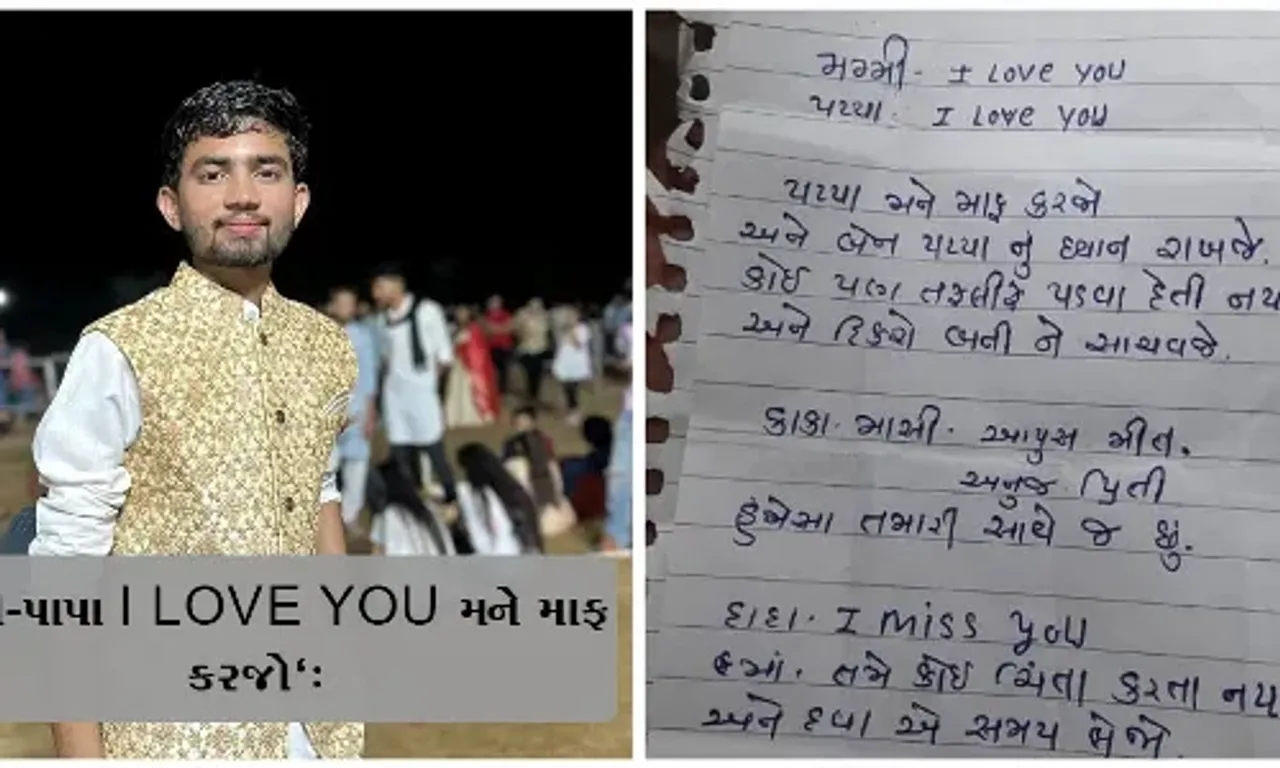 -પાપા I LOVE YOU મને માફ
કરજો‘:
મમ્મી. I LOVe YOU
પપ્પા. I LOVe YOU
પપ્પા મને માફ કરજો
અને બેન પપ્પા નું ધ્યાન રાખજે.
કોઈ પણ તકલીફ પડવા દેતી નય
અને દિકરો બની ને સાચવજે.
કાકા. માસી. આયુસ મીત.
અનુજ પ્રિતી
હંમેસા તમારી સાથે જ છું.
દાદા. I Miss YOU
તમે કોઈ ચિંતા કરતા નય
અને દવા એ સમય લેજો.